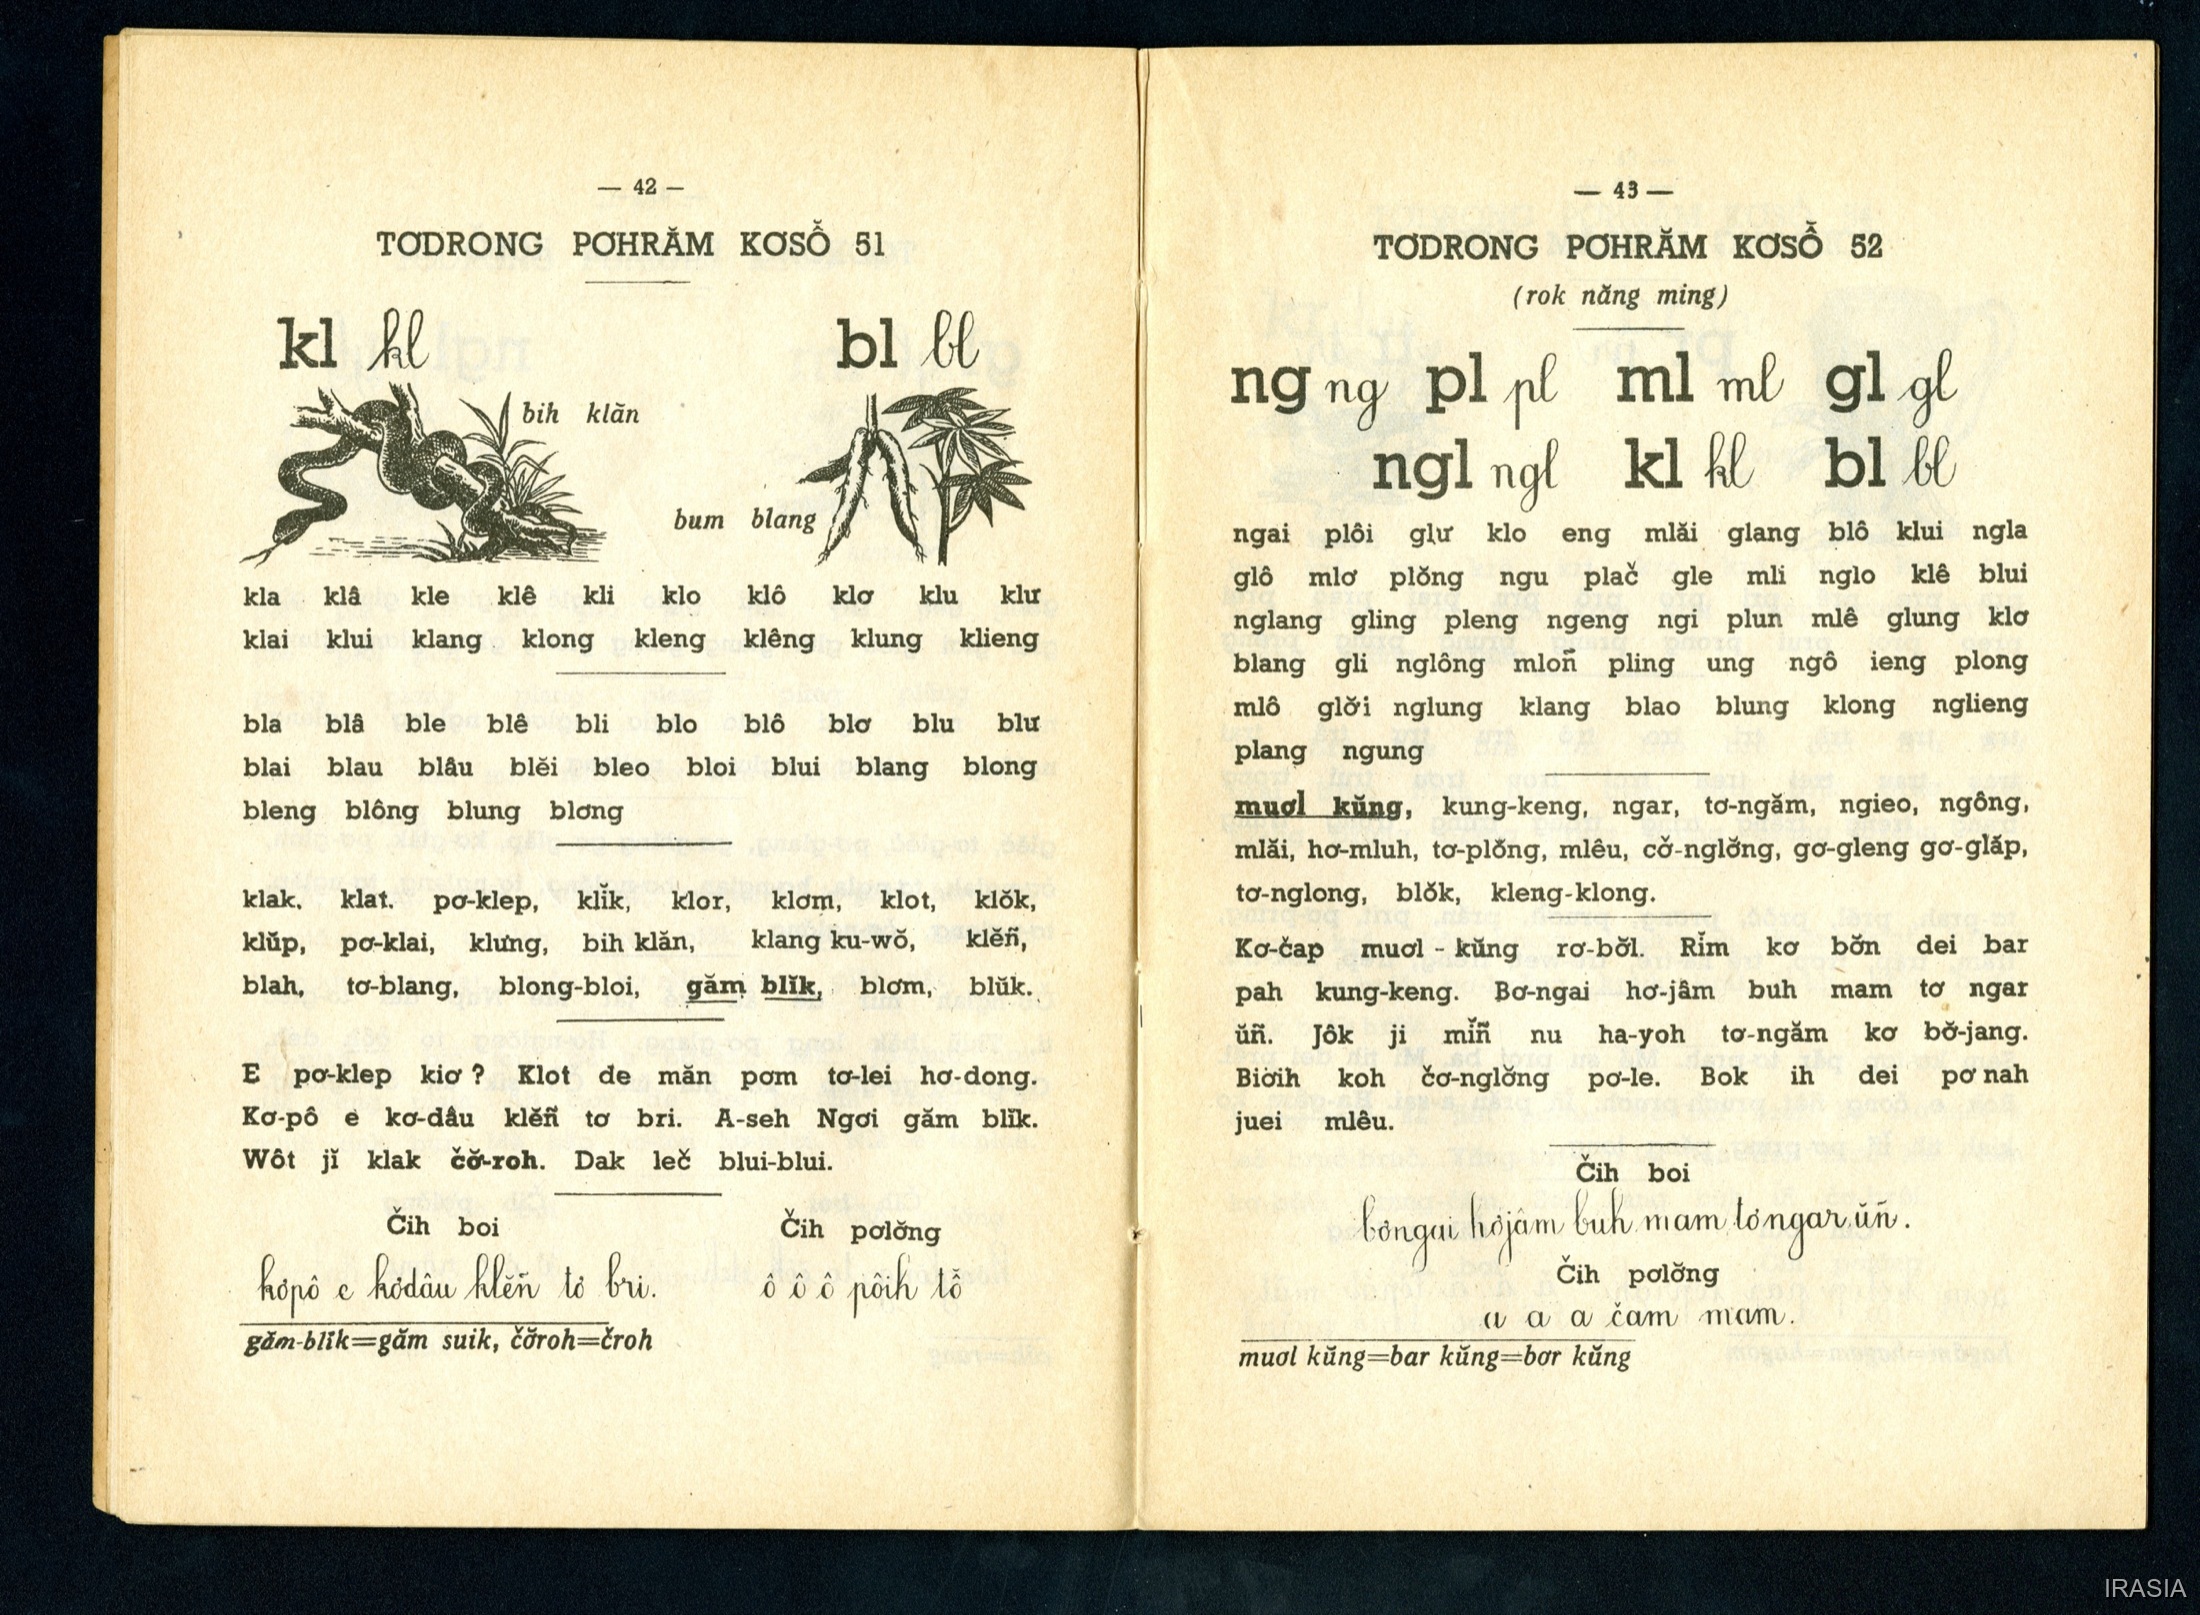 — 42 —
TƠDRONG PƠHRĂM KƠSỐ̆ 51
kl kl
bl bl
bih klăn
bum blang
kla klâ kle klê kli klo klô klơ klu klư
klai klui klang klong kleng klêng klung klieng
bla blâ ble blê bli blo blô blơ blu blư
blai blau blâu blĕi bleo bloi blui blang blong
bleng blông blung blơng
klak, klat, pơ-klep, klĭk, klor, klơm, klot, klŏk,
klŭp, pơ-klai, klưng, bih klăn, klang ku-wŏ, klĕñ,
blah, tơ-blang, blong-bloi, găm blĭk, blơm, blŭk.
E pơ-klep kiơ ? Klot de măn pơm tơ-lei hơ-dong.
Kơ-pô e kơ-dâu klĕñ tơ bri. A-seh Ngơi găm blĭk.
Wôt jĭ klak čơ̆-roh. Dak leč blui-blui.
Čih boi
Čih pơlơ̆ng
kơpô e kơdâu klĕñ tơ bri.
ô ô ô pôih tô̆
găm-blĭk=găm suik, čơ̆roh=čroh
— 43 —
TƠDRONG PƠHRĂM KƠSỐ̆ 52
(rok năng ming)
ng ng pl pl ml ml gl gl
ngl ngl kl kl bl bl
ngai plôi glư klo eng mlăi glang blô klui ngla
glô mlơ plŏng ngu plač gle mli nglo klê blui
nglang gling pleng ngeng ngi plun mlê glung klơ
blang gli nglông mloñ pling ung ngô ieng plong
mlô glơ̆i nglung klang blao blung klong nglieng
plang ngung
muơl kŭng, kung-keng, ngar, tơ-ngăm, ngieo, ngông,
mlăi, hơ-mluh, tơ-plŏng, mlêu, cơ̆-nglơ̆ng, gơ-gleng gơ-glăp,
tơ-nglong, blŏk, kleng-klong.
Kơ-čap muơl - kŭng rơ-bơ̆l. Rĭm kơ bơ̆n dei bar
pah kung-keng. Bơ-ngai hơ-jâm buh mam tơ ngar
ŭñ. Jôk ji mĭñ nu ha-yoh tơ-ngăm kơ bơ̆-jang.
Biơih koh čơ-nglơ̆ng pơ-le. Bok ih dei pơ nah
juei mlêu.
Čih boi
bơngai hơjâm buh mam tơ ngar ŭñ.
Čih pơlơ̆ng
a a a čam mam.
muơl kŭng=bar kŭng=bơr kŭng
IRASIA